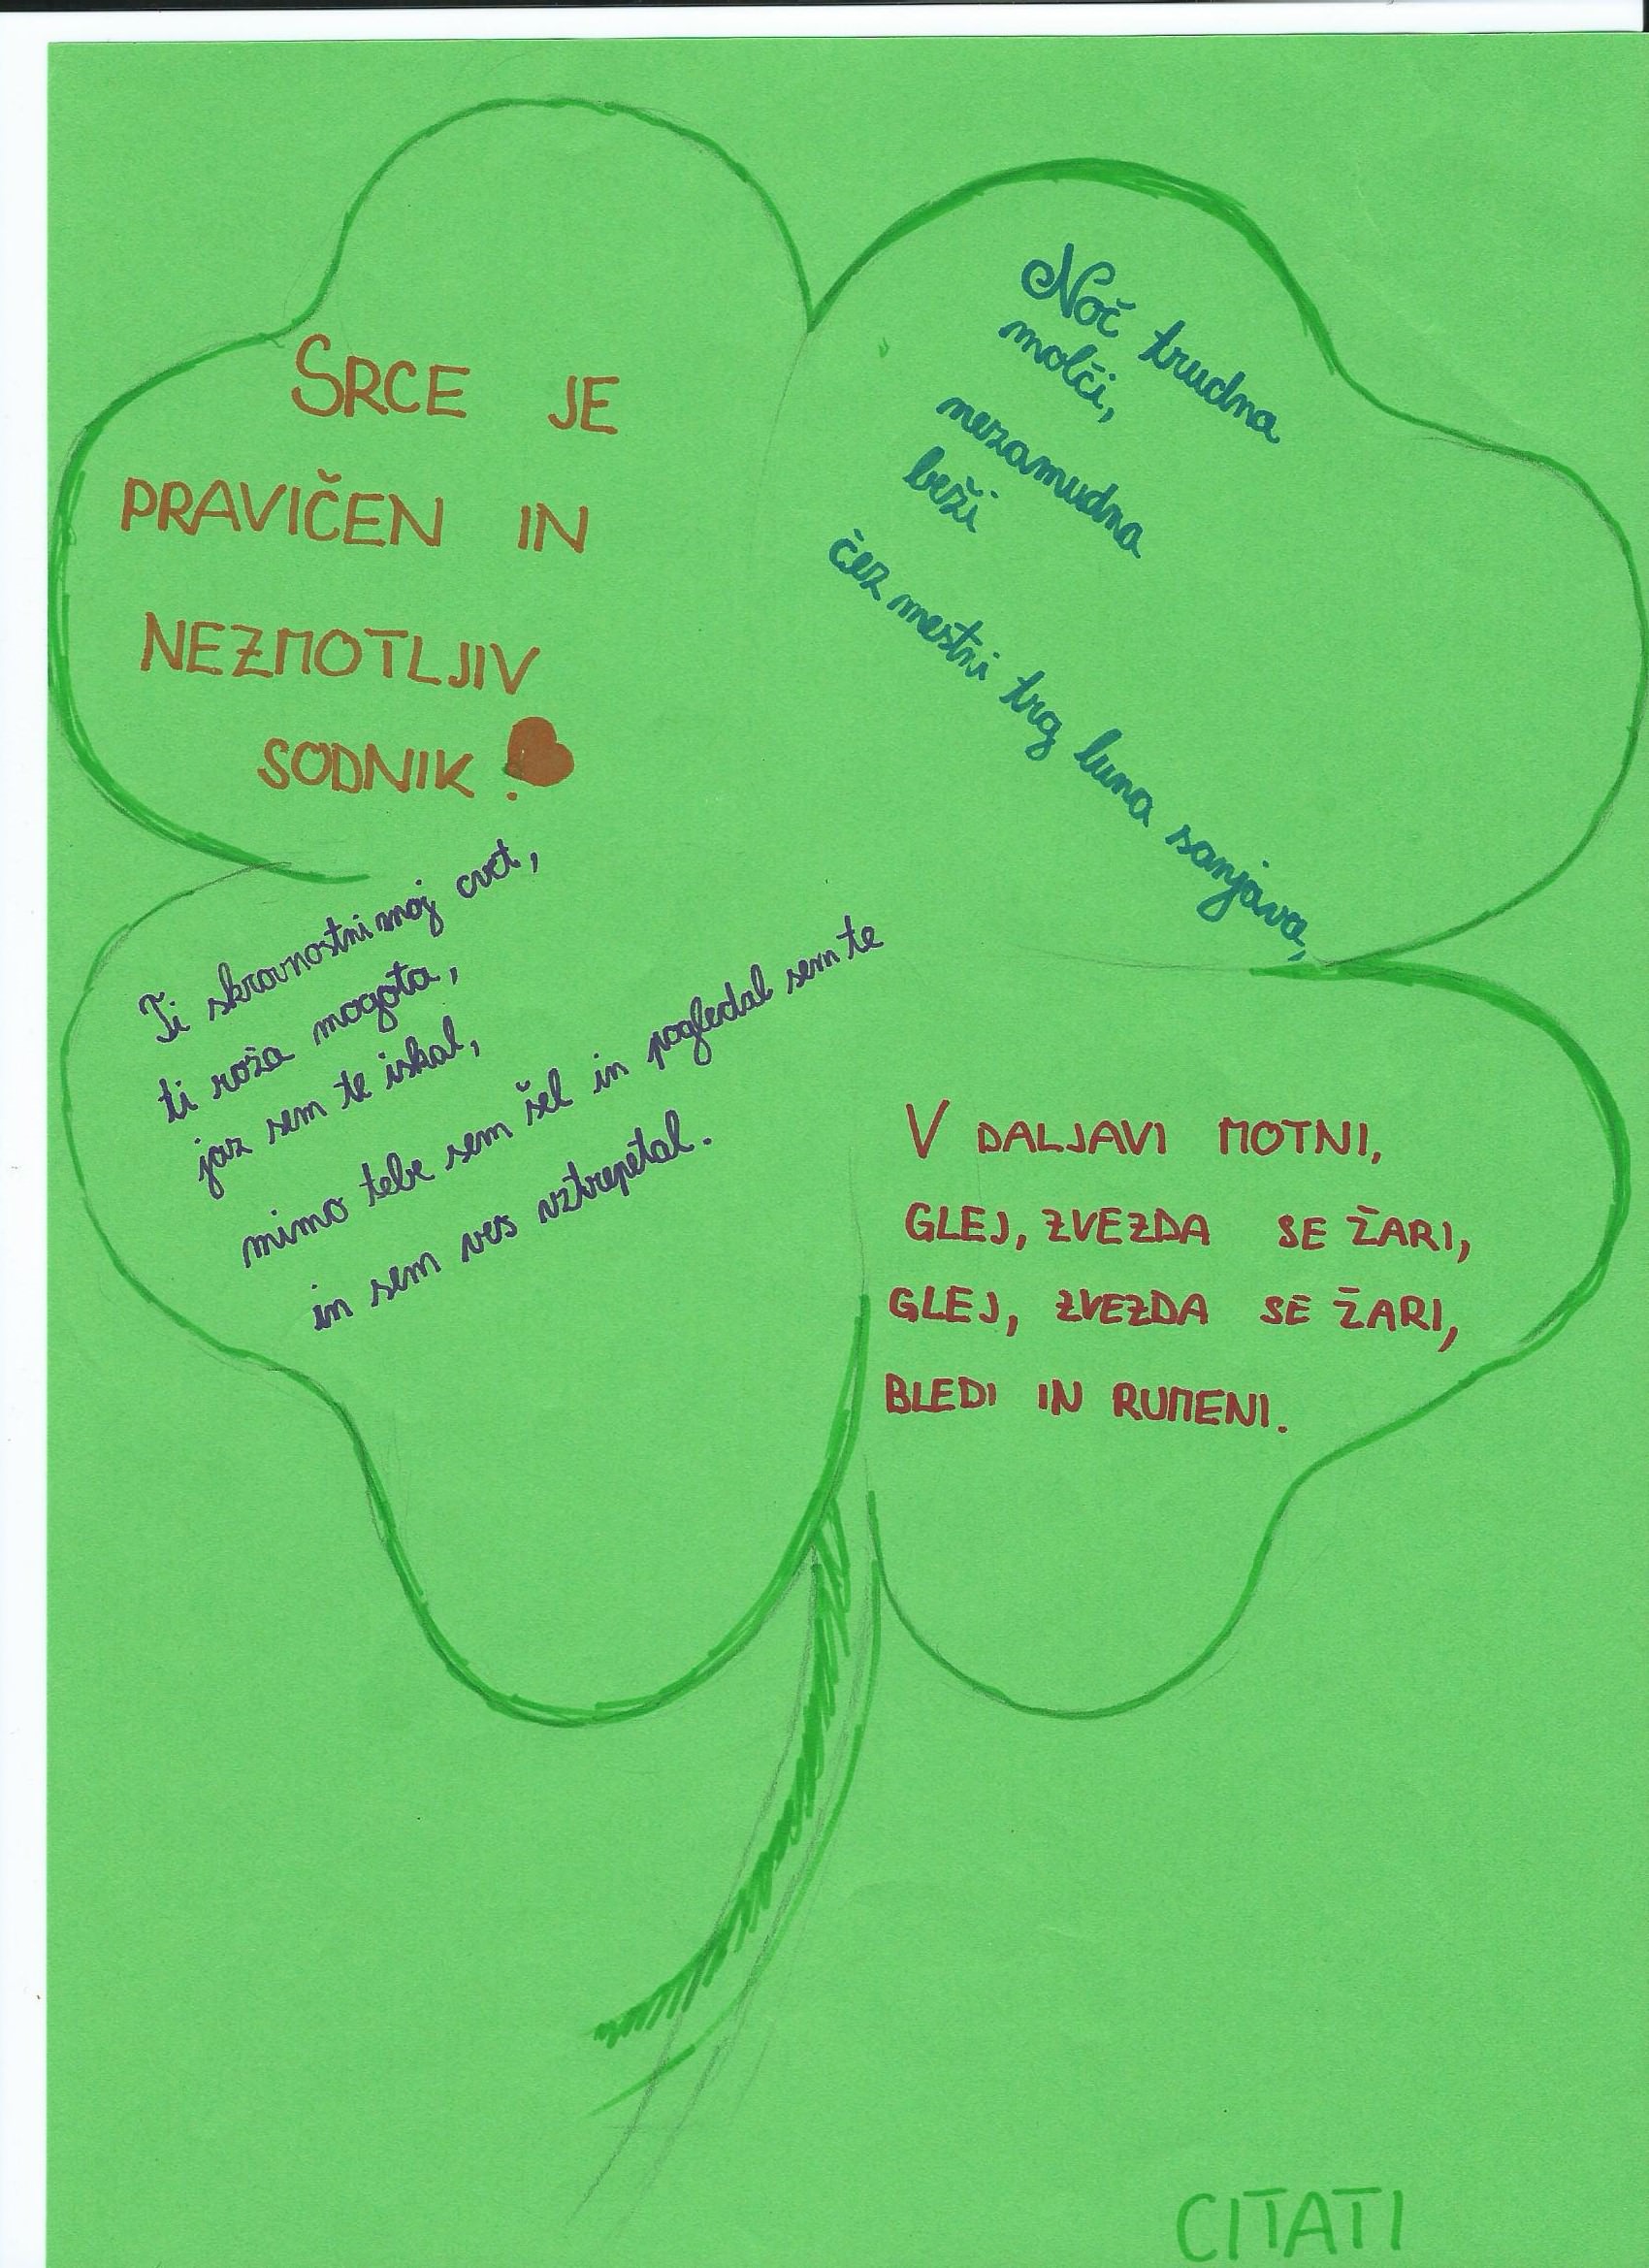 SRCE JE
PRAVIČEN IN
NEZMOTLJIV
SODNIK.
Noč trudna
molči,
nezamudna
beži
čez mestni trg luna sanjava,
Ti skrovnostni moj cvet,
ti roža mogota,
jaz sem te iskal,
mimo tebe sem šel in pogledal sem te
in sem ves vztrepetal.
V DALJAVI MOTNI,
GLEJ, ZVEZDA SE ŽARI,
GLEJ, ZVEZDA SE ŽARI,
BLEDI IN RUMENI.
CITATI